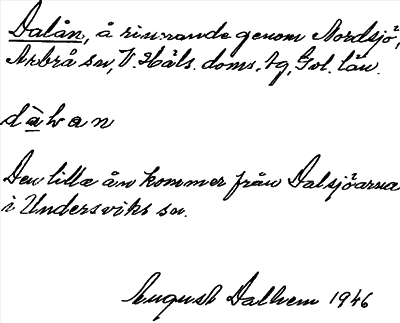 Dalån, å rinnande genom Nordsjö,
Arbrå sn, V. Häls. doms. tg, Gvl. län.
dàƚan
Den lilla ån kommer från Dalsjöarna
i Undersviks sn.
August Dalhem 1946